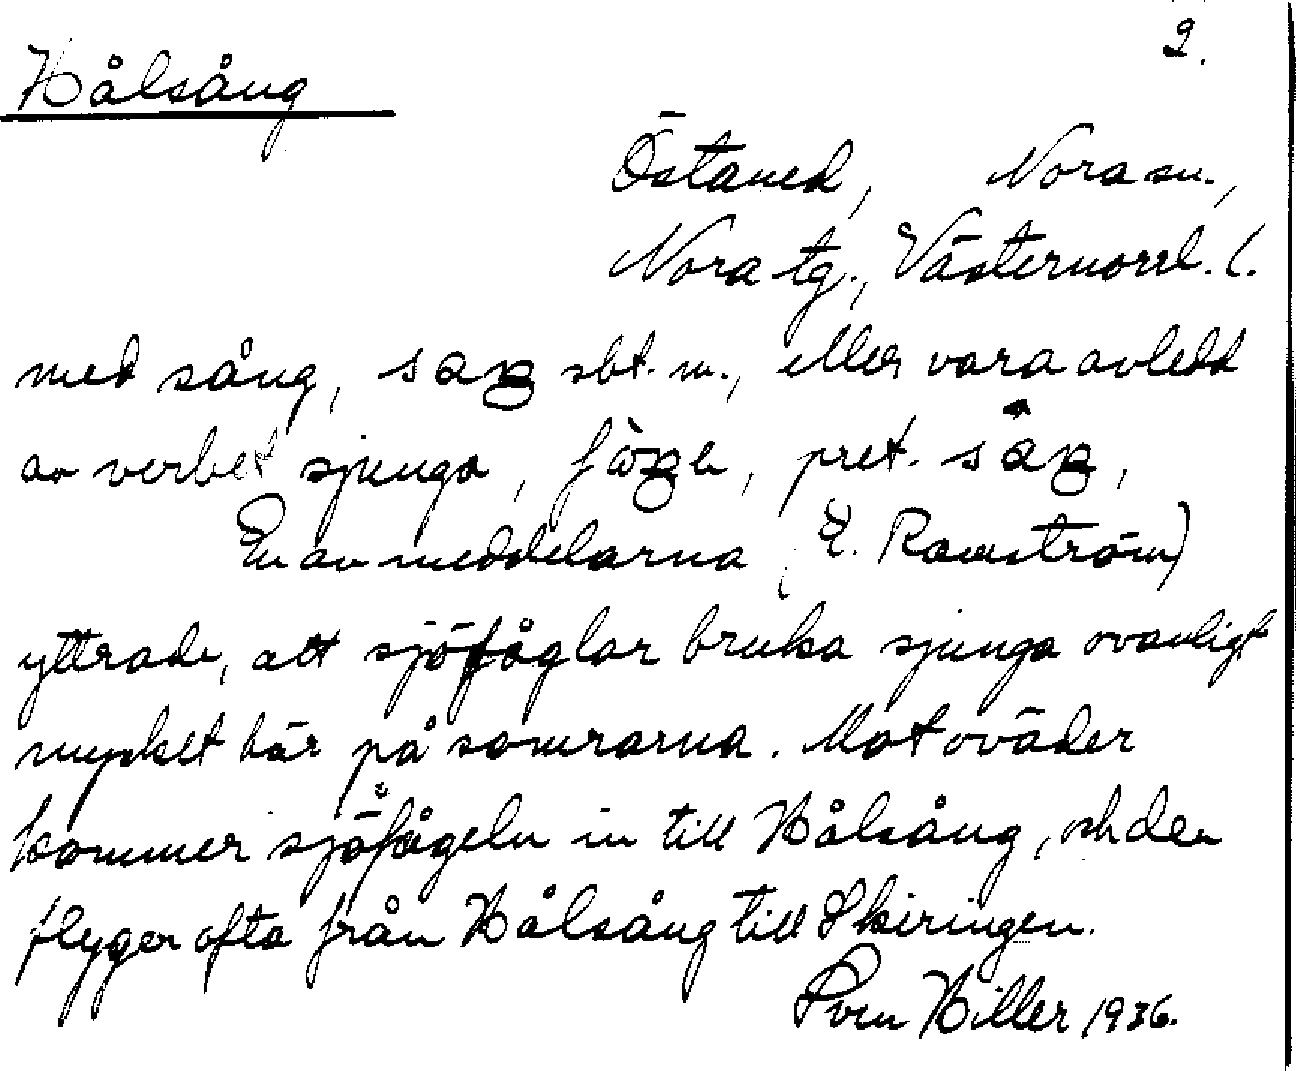 2.
Hålsång
Östaned, Nora sn.,
Nora tg., Västernorrl. l.
med sång, saŋ sbt. m., eller vara avledd
av verbet sjunga, pret. saŋ,
En av meddelarna (E. Ramström)
yttrade, att sjöfåglar bruka sjunga ovanligt
mycket här på somrarna. Mot oväder
kommer sjöfågeln in till Hålsång, och den
flyger ofta från Hålsång till Skiringen.
Sven Hiller 1936.